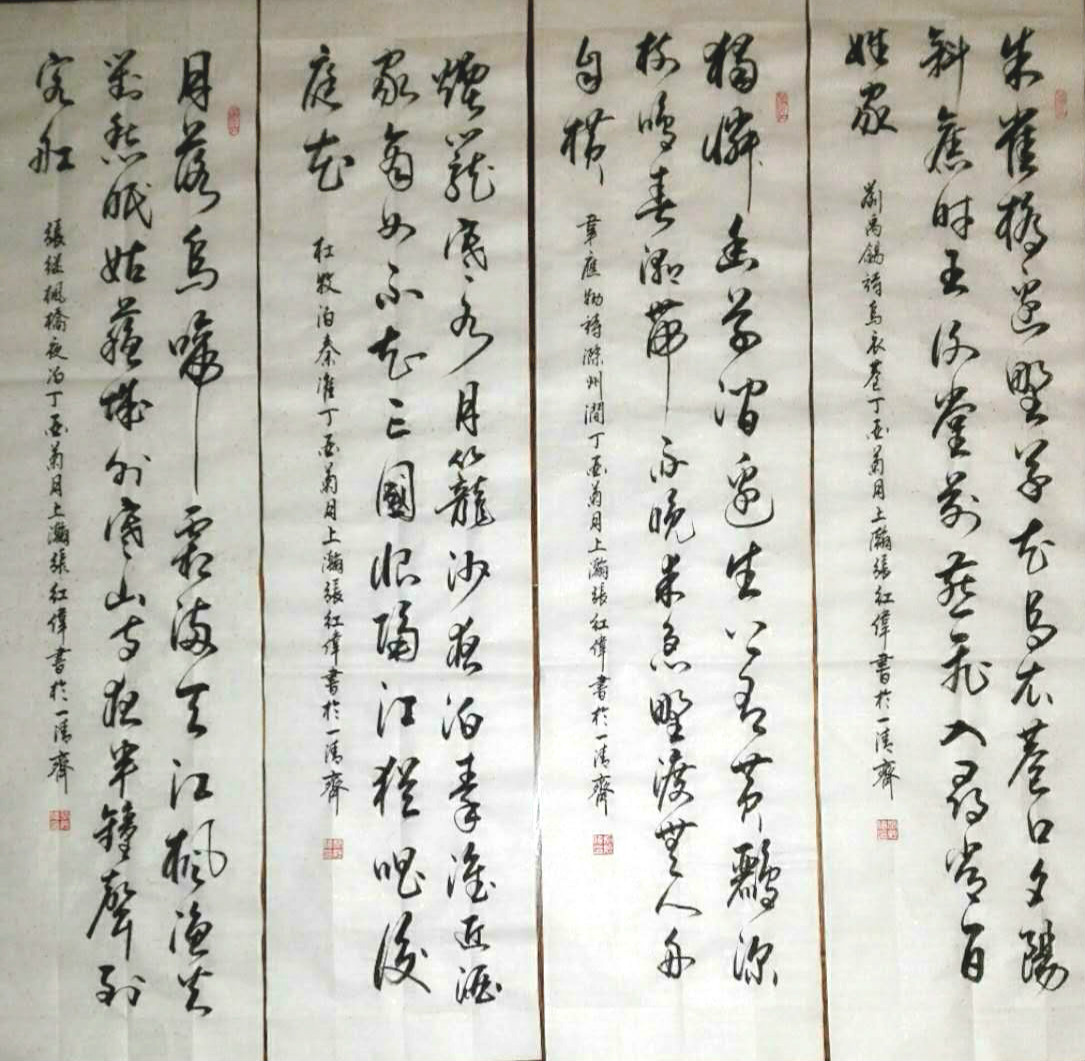 朱雀橋邊野草花烏衣巷口夕陽
斜舊時王謝堂前燕飛入尋常百
姓家
劉禹錫詩烏衣巷丁酉菊月上瀚張紅偉書於一清齋
獨憐幽草澗邊生上有黃鸝深
樹鳴春潮帶雨晚來急野渡無人舟
自橫
韋應物詩滁州澗丁酉菊月上瀚張紅偉書於一清齋
煙籠寒水月籠沙夜泊秦淮近酒
家商女不知亡國恨隔江猶唱後
庭花
杜牧泊秦淮丁酉菊月上瀚張紅偉書於一清齋
月落烏啼霜滿天江楓漁火
對愁眠姑蘇城外寒山寺夜半鐘聲到
客船
張继楓橋夜泊丁酉菊月上瀚張紅偉書於一清齋